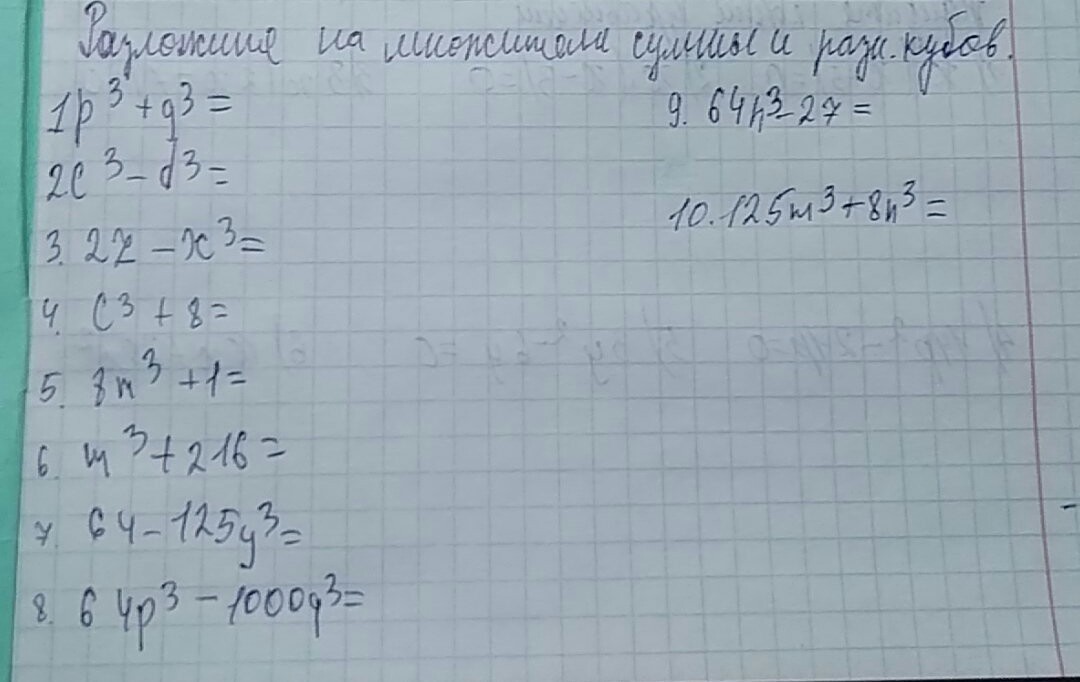 Разложите на множители суммы и разн. кубов.
1 p³ + q³ =
2 c³ - d³ =
3. 27 - x³ =
4. c³ + 8 =
5. 8n³ + 1 =
6. m³ + 216 =
7. 64 - 125y³ =
8. 64p³ - 1000q³ =
9. 64h³ - 27 =
10. 125m³ + 8n³ =